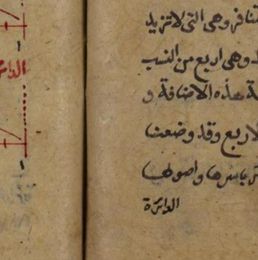 وهى التى لا تزيد
وهى اربع من النسب
هذه الاضافة و
الاربع وقد وضعنا
باسرها واصولها
الدائرة